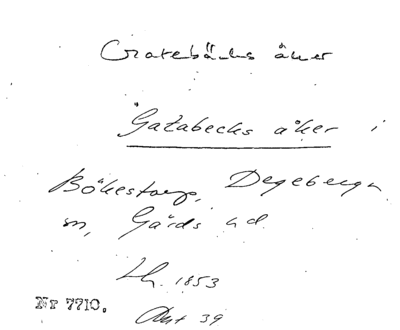 Gatebäcks åker
Gatabecks åker i
Bökestorp, Degeberga
sn, Gärds hd.
Lh. 1853
Avt 39
Nr 7710.